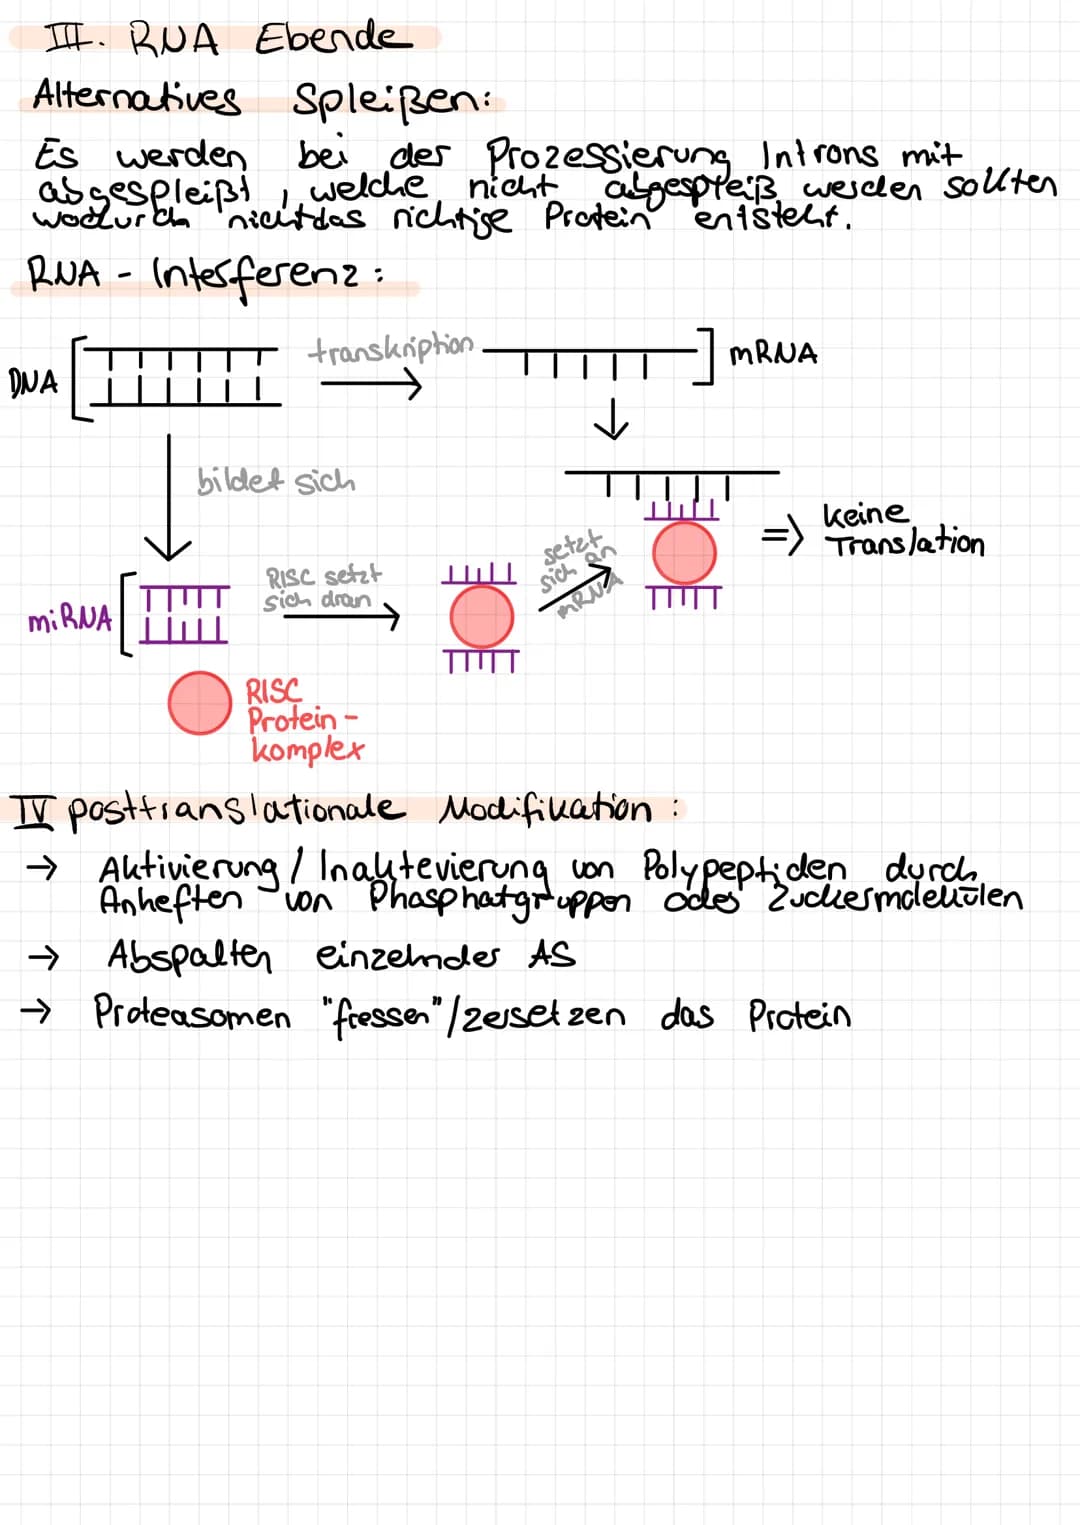 III. RNA Ebende
Alternatives Spleißen:
Es werden bei der Prozessierung Introns mit
abgespleißt, welche nicht abgespleiß werden sollten
wodurch nicht das richtige Protein entsteht.
RNA - Interferenz:
transkription
DNA
mRNA
bildet sich
keine
Translation
setzt
sich an
mRNA
RISC setzt
sich dran
miRNA
RISC
Protein-
komplex
IV posttranslationale Modifikation:
→ Aktivierung / Inaktevierung von Polypeptiden durch
Anheften von Phasphatgruppen oder Zuckermolekülen
→ Abspalten einzelnder AS
→ Proteasomen "fressen"/zersetzen das Protein